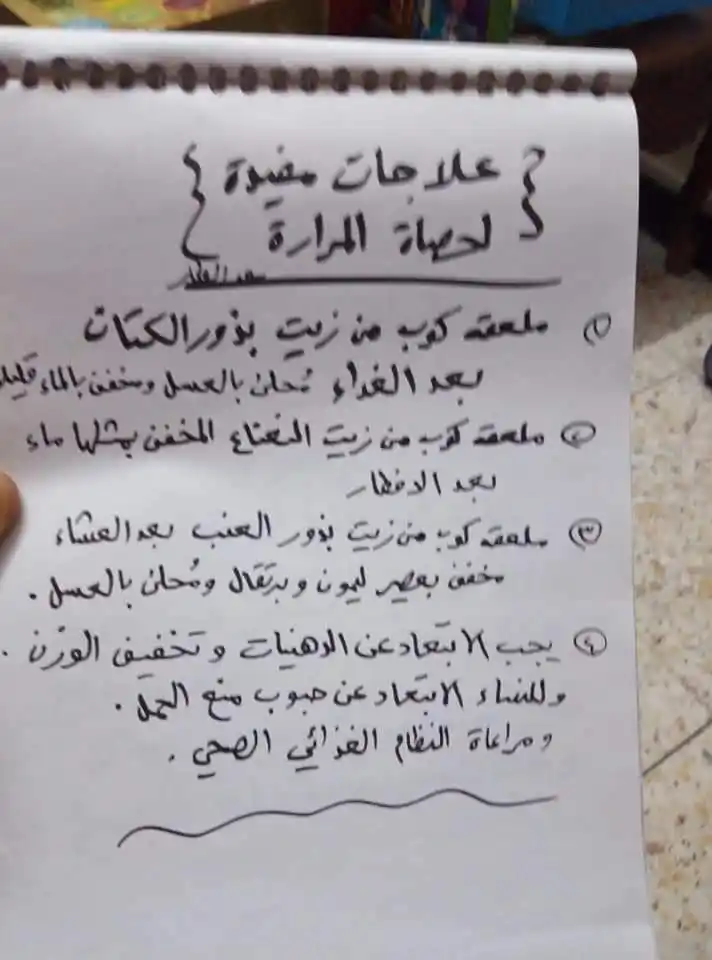 { علاجات مفيدة
لحصاة المرارة }
سعد العطار
① ملعقه كوب من زيت بذور الكتان
بعد الغداء مُحلى بالعسل ومخفف بالماء قليلا
② ملعقه كوب من زيت النعناع المخفف بمثلها ماء
بعد الافطار
③ ملعقه كوب من زيت بذور العنب بعد العشاء
مخفف بعصير ليمون وبرتقال ومُحلى بالعسل .
④ يجب الابتعاد عن الدهنيات وتخفيف الوزن .
وللنساء الابتعاد عن حبوب منع الحمل .
ومراعاة النظام الغذائي الصحي .